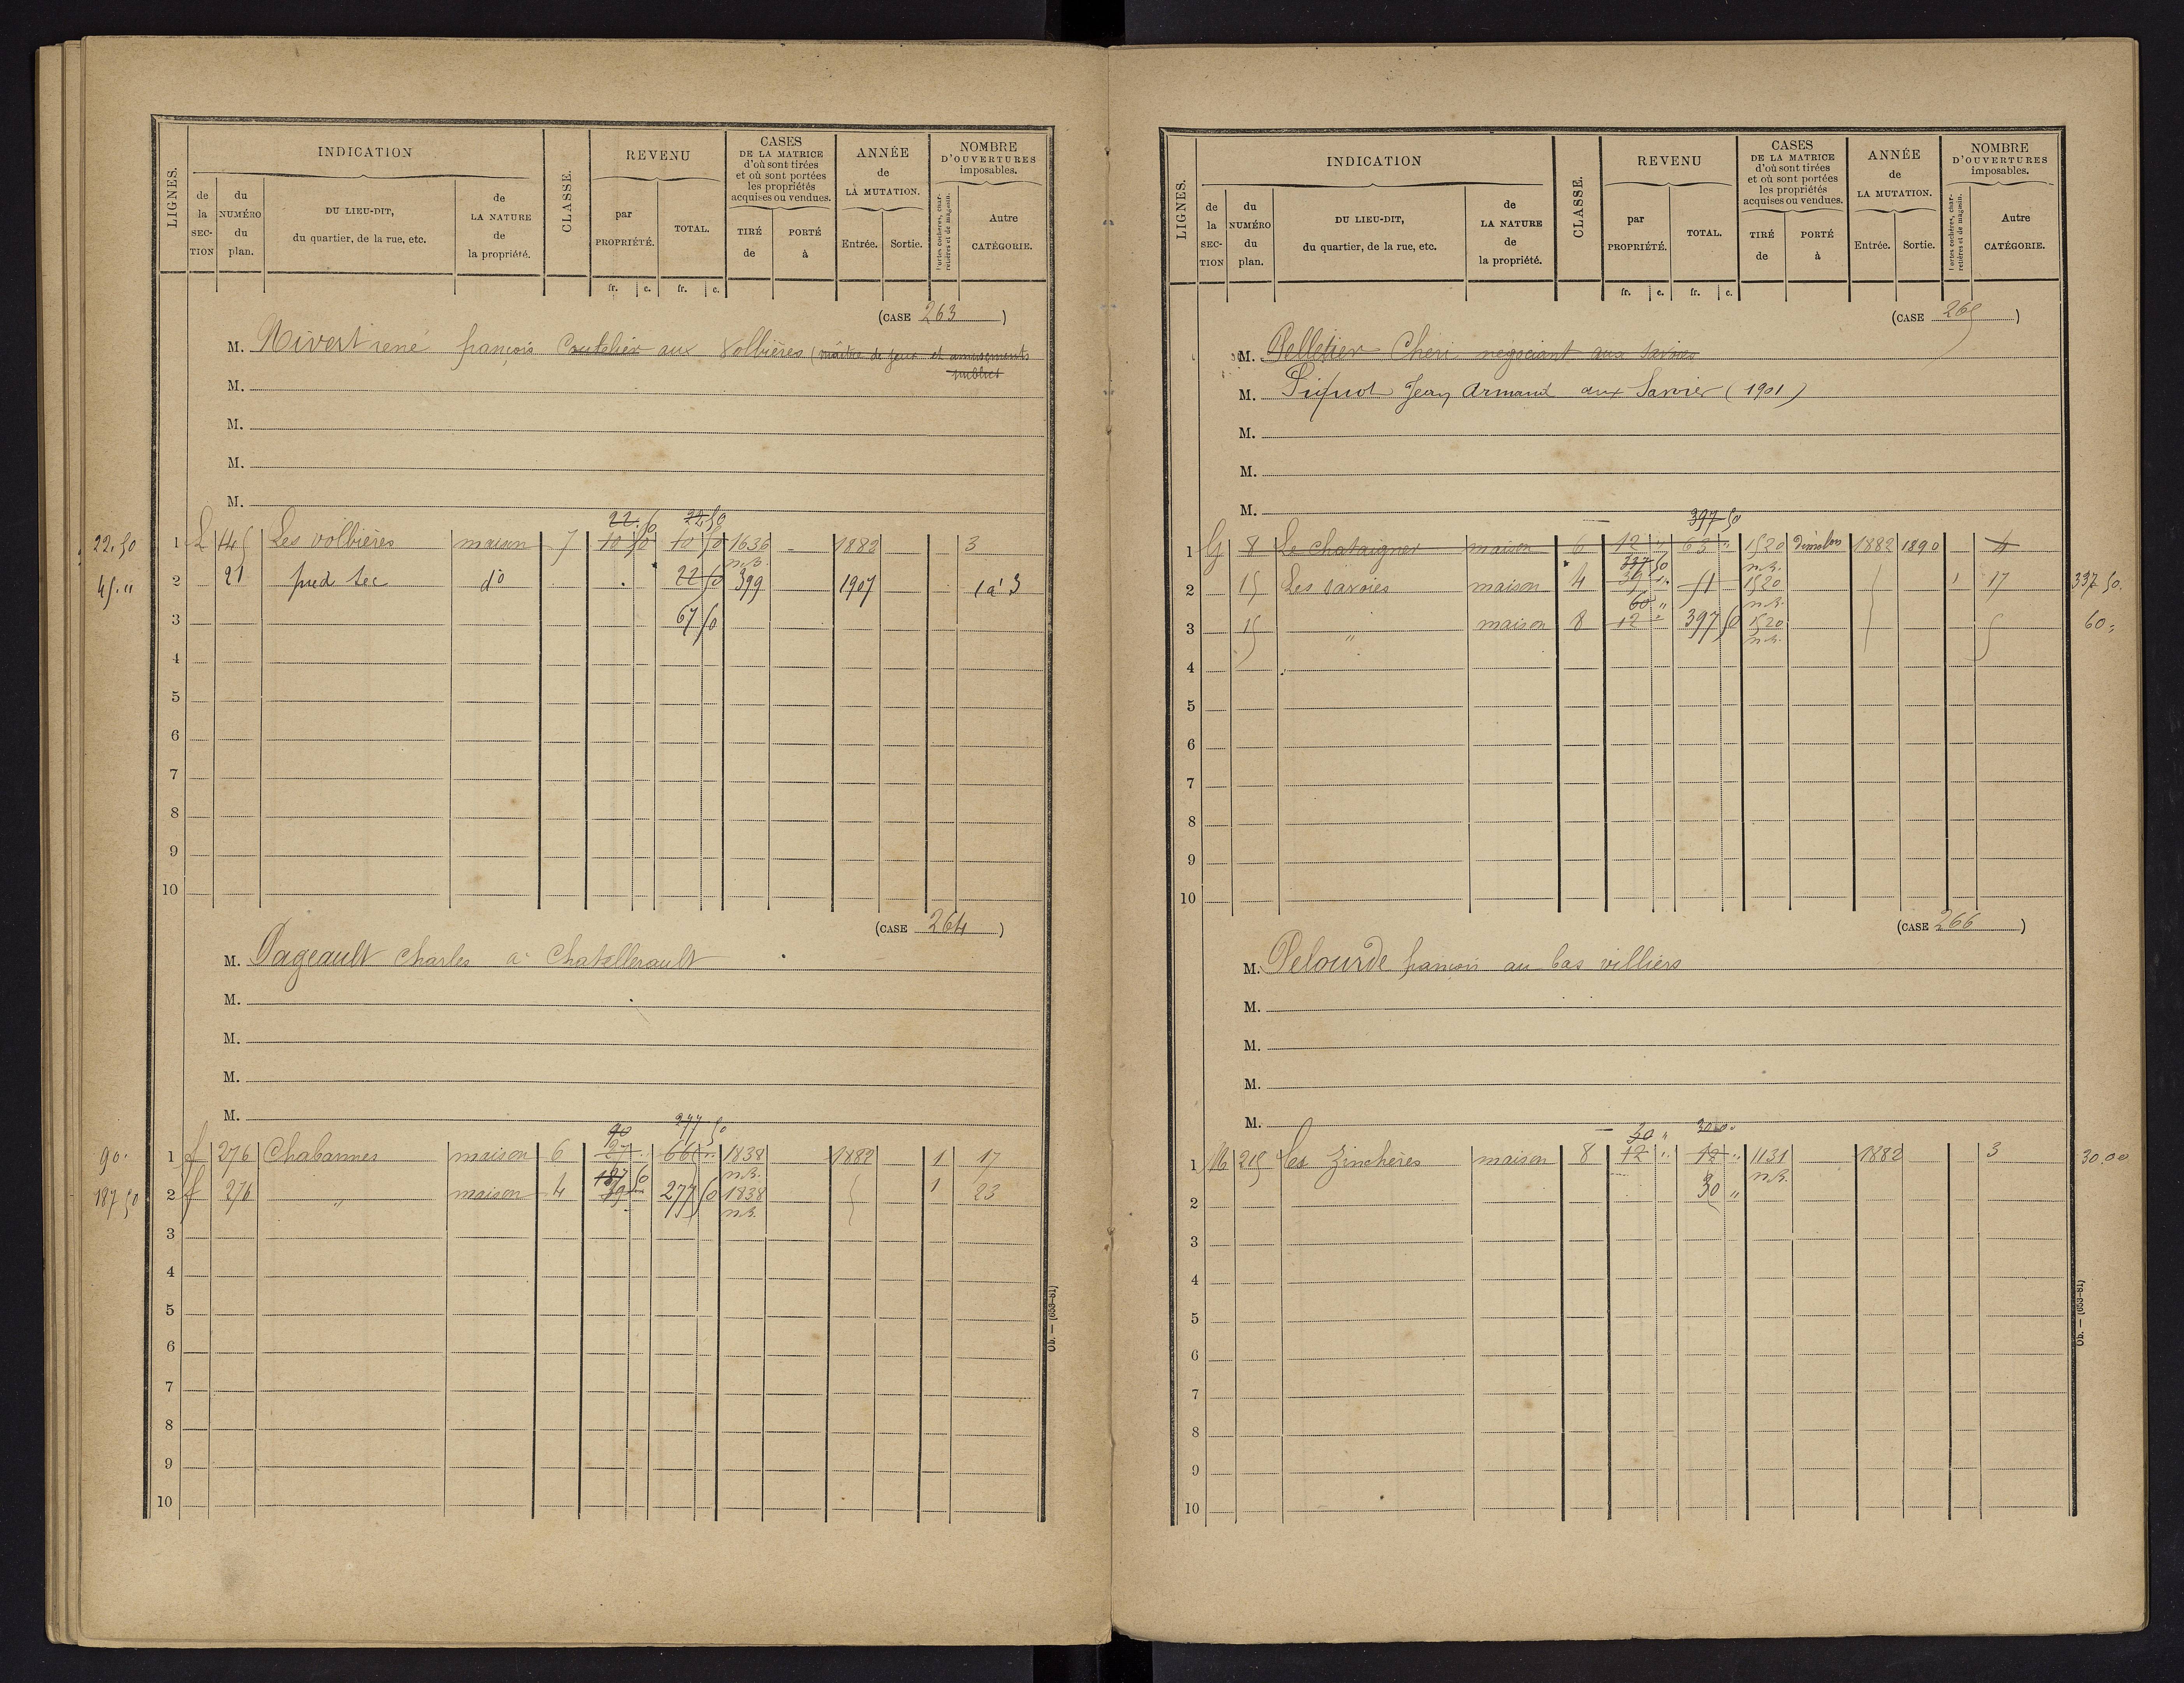 LIGNES.
INDICATION
de la SEC-TION
du NUMÉRO du plan.
DU LIEU-DIT, du quartier, de la rue, etc.
de LA NATURE de la propriété.
CLASSE.
REVENU
par PROPRIÉTÉ.
TOTAL.
fr. c. fr. c.
CASES DE LA MATRICE d'où sont tirées et où sont portées les propriétés acquises ou vendues.
TIRÉ de
PORTÉ à
ANNÉE de LA MUTATION.
Entrée. Sortie.
NOMBRE D'OUVERTURES imposables.
Portes cochères, charretières et de magasin.
Autre CATÉGORIE.
(CASE 263)
M. Nivert rené françois Coutelier aux Volbières (maître de jeux et amusements
publics
M.
M.
M.
M.
22.50 22.50
22,50 1 L 145 Les volbières maison 7 10 50 10 50 1636 1882 3
n.B.
45. " 2 21 pied sec do 22 50 399 1907 1 à 3
3 67 50
4
5
6
7
8
9
10
(CASE 264)
M. Pageault Charles à Chatellerault
M.
M.
M.
M.
90 277 50
90 1 f 276 Chabannes maison 6 27 66 1838 1882 1 17
187 50 n.B.
187 50 2 f 276 " maison 4 39 277 50 1838 1 23
n.B.
3
4
5
6
7
8
9
10
Ob. — (653-81)
LIGNES.
INDICATION
de la SEC-TION
du NUMÉRO du plan.
DU LIEU-DIT, du quartier, de la rue, etc.
de LA NATURE de la propriété.
CLASSE.
REVENU
par PROPRIÉTÉ.
TOTAL.
fr. c. fr. c.
CASES DE LA MATRICE d'où sont tirées et où sont portées les propriétés acquises ou vendues.
TIRÉ de
PORTÉ à
ANNÉE de LA MUTATION.
Entrée. Sortie.
NOMBRE D'OUVERTURES imposables.
Portes cochères, charretières et de magasin.
Autre CATÉGORIE.
(CASE 265)
M. Pelletier Cheri negociant aux savoies
M. Jean Armand aux Savoies (1901)
M.
M.
M.
397 50
1 G 8 Le Chataignier maison 6 12 " 63 " 1520 1882 1890 4
337 50 n.B.
2 15 Les savoies maison 4 39 51 1520 1 17 337 50
60 " n.B.
3 15 " maison 8 12 397 50 1520 5 60 "
n.B.
4
5
6
7
8
9
10
(CASE 266)
M. Pelourde françois au bas villiers
M.
M.
M.
M.
30 " 30 00
1 M 215 Les maison 8 12 " 12 " 1131 1882 3 30.00
n.B.
2 30 "
3
4
5
6
7
8
9
10
Ob. — (653-81)